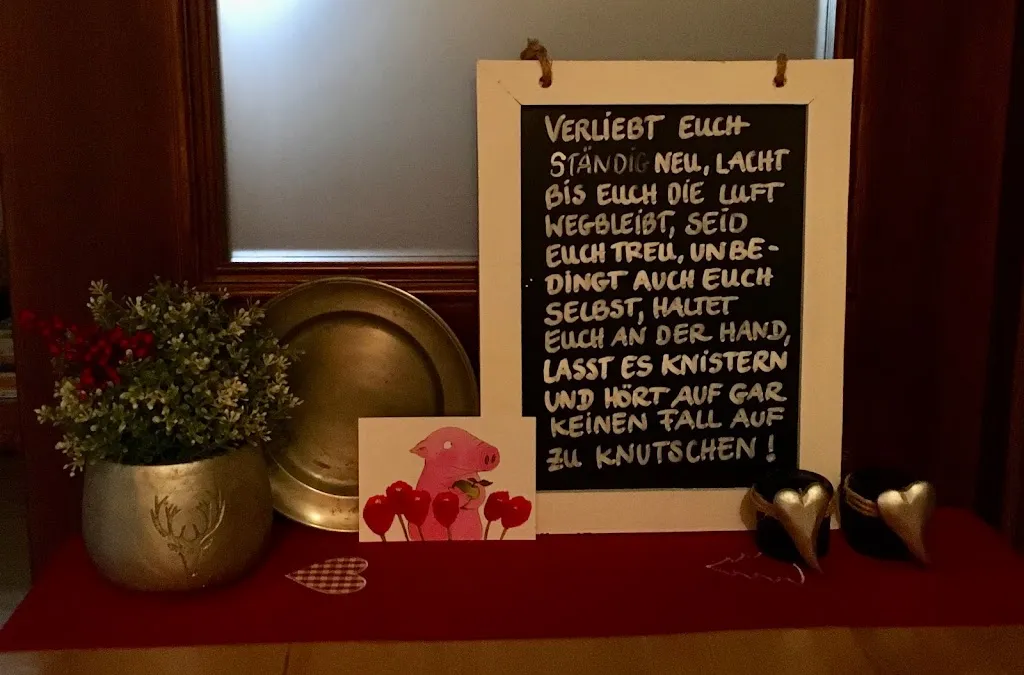 VERLIEBT EUCH
STÄNDIG NEU, LACHT
BIS EUCH DIE LUFT
WEGBLEIBT, SEID
EUCH TREU, UNBE-
DINGT AUCH EUCH
SELBST, HALTET
EUCH AN DER HAND,
LASST ES KNISTERN
UND HÖRT AUF GAR
KEINEN FALL AUF
ZU KNUTSCHEN!